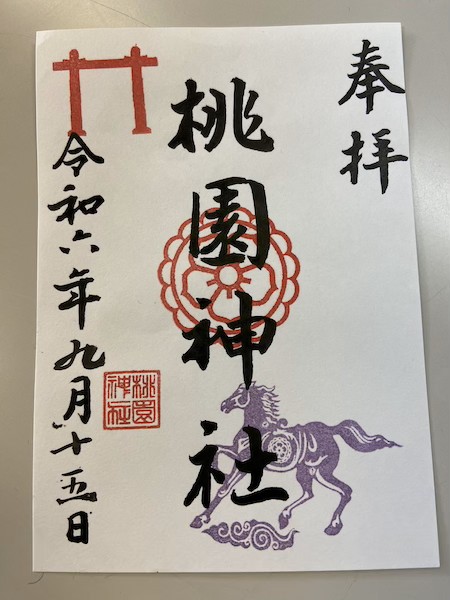 奉拝
桃園神社
令和六年九月十五日
桃園
神社